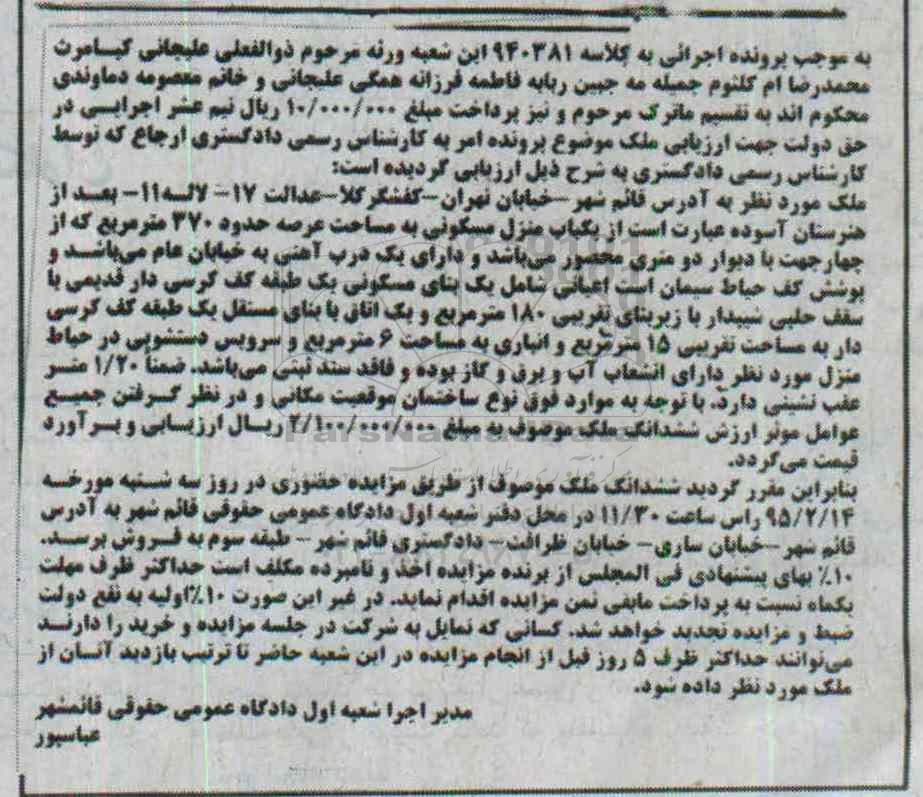 به موجب پرونده اجرائی به کلاسه ۹۴۰۳۸۱ این شعبه ورثه مرحوم ذوالفعلی علیجانی کیامرث
محمدرضا ام کلثوم جمیله مه جبین ربابه فاطمه فرزانه همگی علیجانی و خانم معصومه دماوندی
محکوم اند به تقسیم ماترک مرحوم و نیز پرداخت مبلغ ۱۰/۰۰۰/۰۰۰ ریال نیم عشر اجرایی در
حق دولت جهت ارزیابی ملک موضوع پرونده امر به کارشناس رسمی دادگستری ارجاع که توسط
کارشناس رسمی دادگستری به شرح ذیل ارزیابی گردیده است:
ملک مورد نظر به آدرس قائم شهر –خیابان تهران–کفشگرکلا–عدالت ۱۷– لاله۱۱– بعد از
هنرستان آسوده عبارت است از یکباب منزل مسکونی به مساحت عرصه حدود ۳۷۰ مترمربع که از
چهارجهت با دیوار دو متری محصور می‌باشد و دارای یک درب آهنی به خیابان عام می‌باشد و
پوشش کف حیاط سیمان است اعیانی شامل یک بنای مسکونی یک طبقه کف کرسی دار قدیمی با
سقف حلبی شیبدار با زیربنای تقریبی ۱۸۰ مترمربع و یک اتاق با بنای مستقل یک طبقه کف کرسی
دار به مساحت تقریبی ۱۵ مترمربع و انباری به مساحت ۶ مترمربع و سرویس دستشویی در حیاط
منزل مورد نظر دارای انشعاب آب و برق و گاز بوده و فاقد سند ثبتی می‌باشد. ضمنا ۱/۲۰ متر
عقب نشینی دارد. با توجه به موارد فوق نوع ساختمان موقعیت مکانی و در نظر گرفتن جمیع
عوامل موثر ارزش ششدانگ ملک موصوف به مبلغ ۲/۱۰۰/۰۰۰/۰۰۰ ریال ارزیابی و برآورد
قیمت می‌گردد.
بنابراین مقرر گردید ششدانگ ملک موصوف از طریق مزایده حضوری در روز سه شنبه مورخه
۹۵/۲/۱۴ راس ساعت ۱۱/۳۰ در محل دفتر شعبه اول دادگاه عمومی حقوقی قائم شهر به آدرس
قائم شهر –خیابان ساری– خیابان ظرافت– دادگستری قائم شهر – طبقه سوم به فروش برسد.
۱۰٪ بهای پیشنهادی فی المجلس از برنده مزایده اخذ و نامبرده مکلف است حداکثر ظرف مهلت
یکماه نسبت به پرداخت مابقی ثمن مزایده اقدام نماید. در غیر این صورت ۱۰٪اولیه به نفع دولت
ضبط و مزایده تجدید خواهد شد. کسانی که تمایل به شرکت در جلسه مزایده و خرید را دارند
می‌توانند حداکثر ظرف ۵ روز قبل از انجام مزایده در این شعبه حاضر تا ترتیب بازدید آنسان از
ملک مورد نظر داده شود.
مدیر اجرا شعبه اول دادگاه عمومی حقوقی قائمشهر
عباسپور